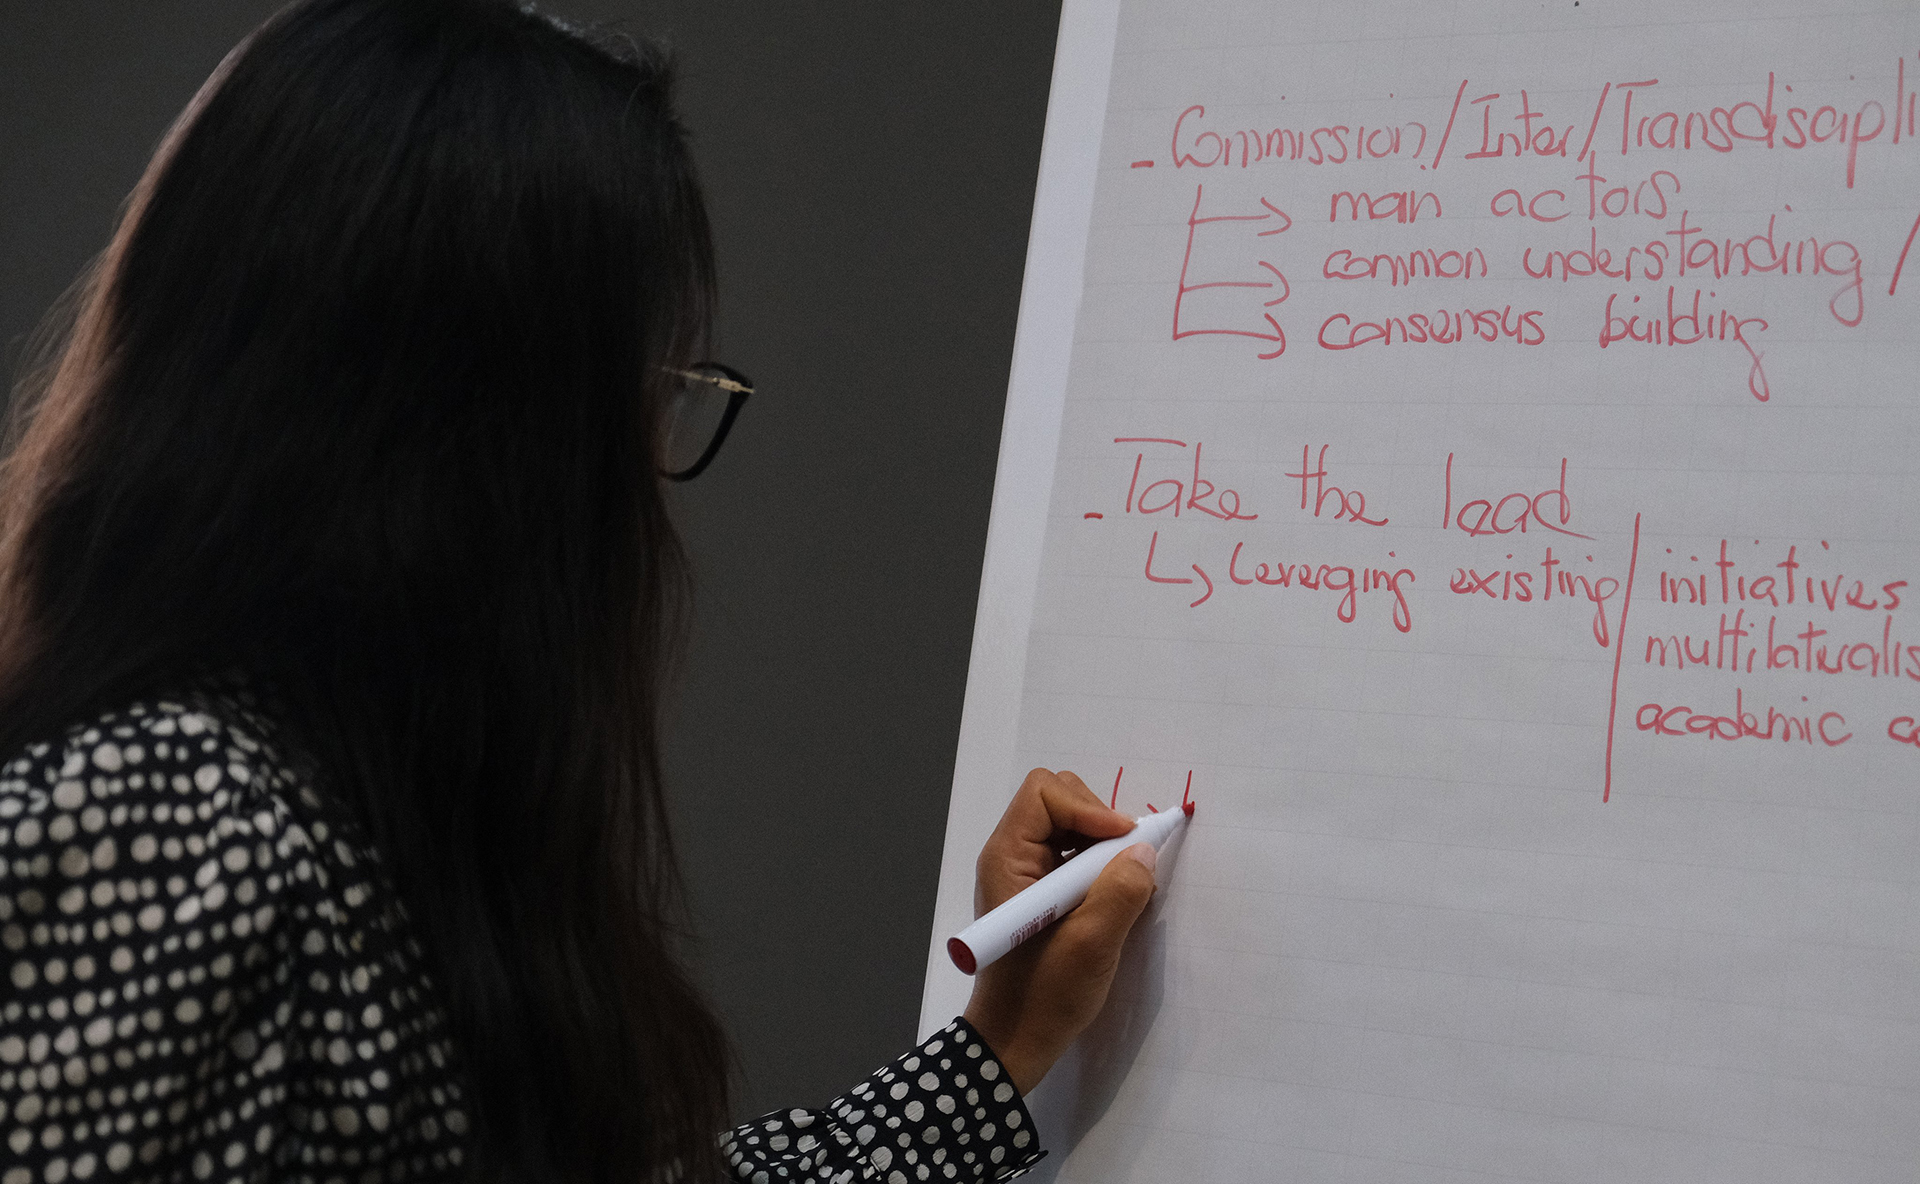 - Commission/Inter/Transdiscipli
man actors
common understanding /
consensus building
- Take the lead
Leveraging existing / initiatives
multilateralis
academic